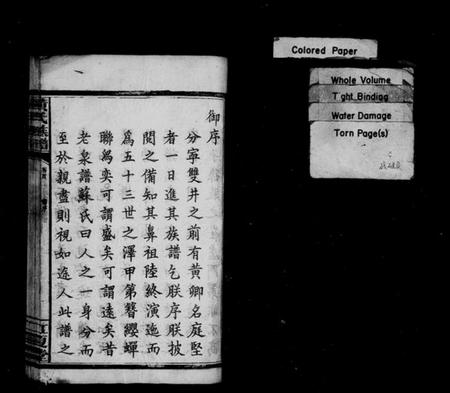 御序
分寧雙井之前有黃卿名庭堅
者一日進其族譜乞朕序朕披
閱之備知其鼻祖陸終演迤而
爲五十三世之澤甲第簪纓蟬
聯爲奕可謂盛矣可謂遠矣昔
老泉譜蘇氏曰人之一身分而
至於親盡則視如途人此譜之
Colored Paper
Whole Volume
Tight Binding
Water Damage
Torn Page(s)